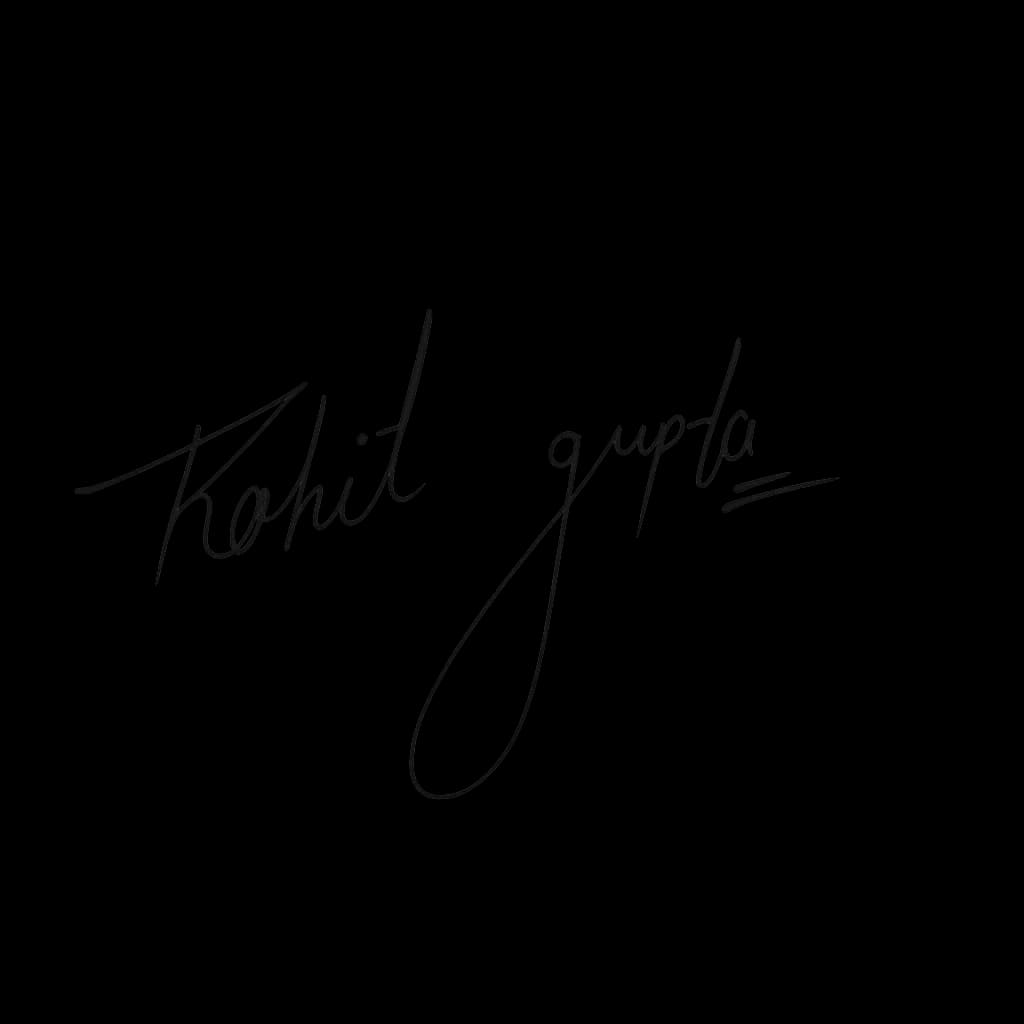 Rohit gupta